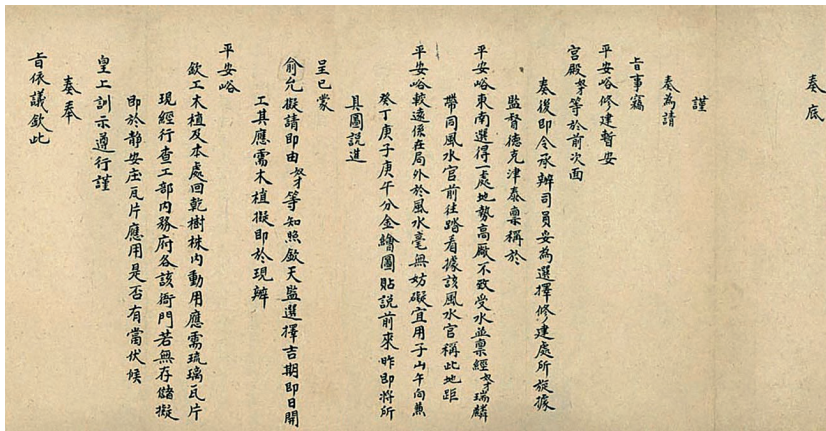 奏底
謹
奏為請
旨事竊
平安峪修建暫安
宮殿奴才等於前次面
奏後即令承辦司員妥為選擇修建處所旋據
監督德克津泰稟稱於
平安峪東南選得一處地勢高厰不致受水並稟經奴才瑞麟
帶同風水官前往踏看據該風水官稱此地距
平安峪較遠係在局外於風水毫無妨礙宜用子山午向兼
癸丁庚子庚午分金繪圖貼說前來昨即將所
具圖說進
呈已蒙
俞允擬請即由奴才等知照欽天監選擇吉期即日開
工其應需木植擬即於現辦
平安峪
欽工木植及本處回乾樹株內動用應需琉璃瓦片
現經行查工部內務府各該衙門若無存儲擬
即於靜安庄瓦片應用是否有當伏候
皇上訓示遵行謹
奏奉
旨依議欽此